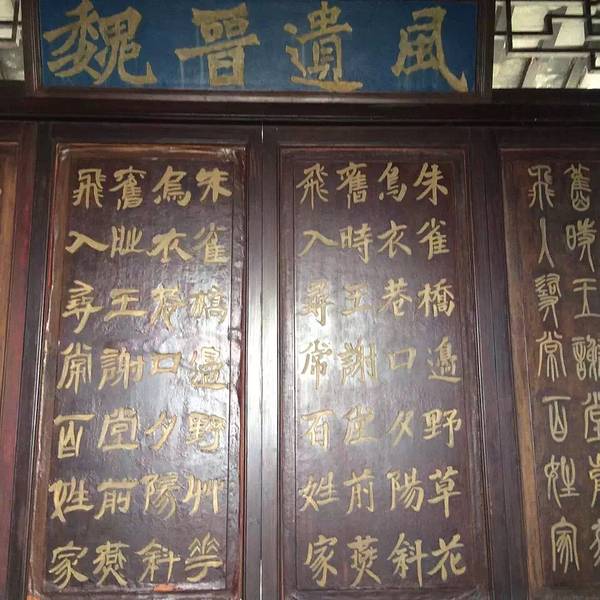 魏晉遺風
舊時王謝堂前燕
飛入尋常百姓家
朱雀橋邊野草花
烏衣巷口夕陽斜
舊時王謝堂前燕
飛入尋常百姓家
朱雀橋邊野艸華
烏衣巷口夕陽斜
舊時王謝堂前燕
飛入尋常百姓家